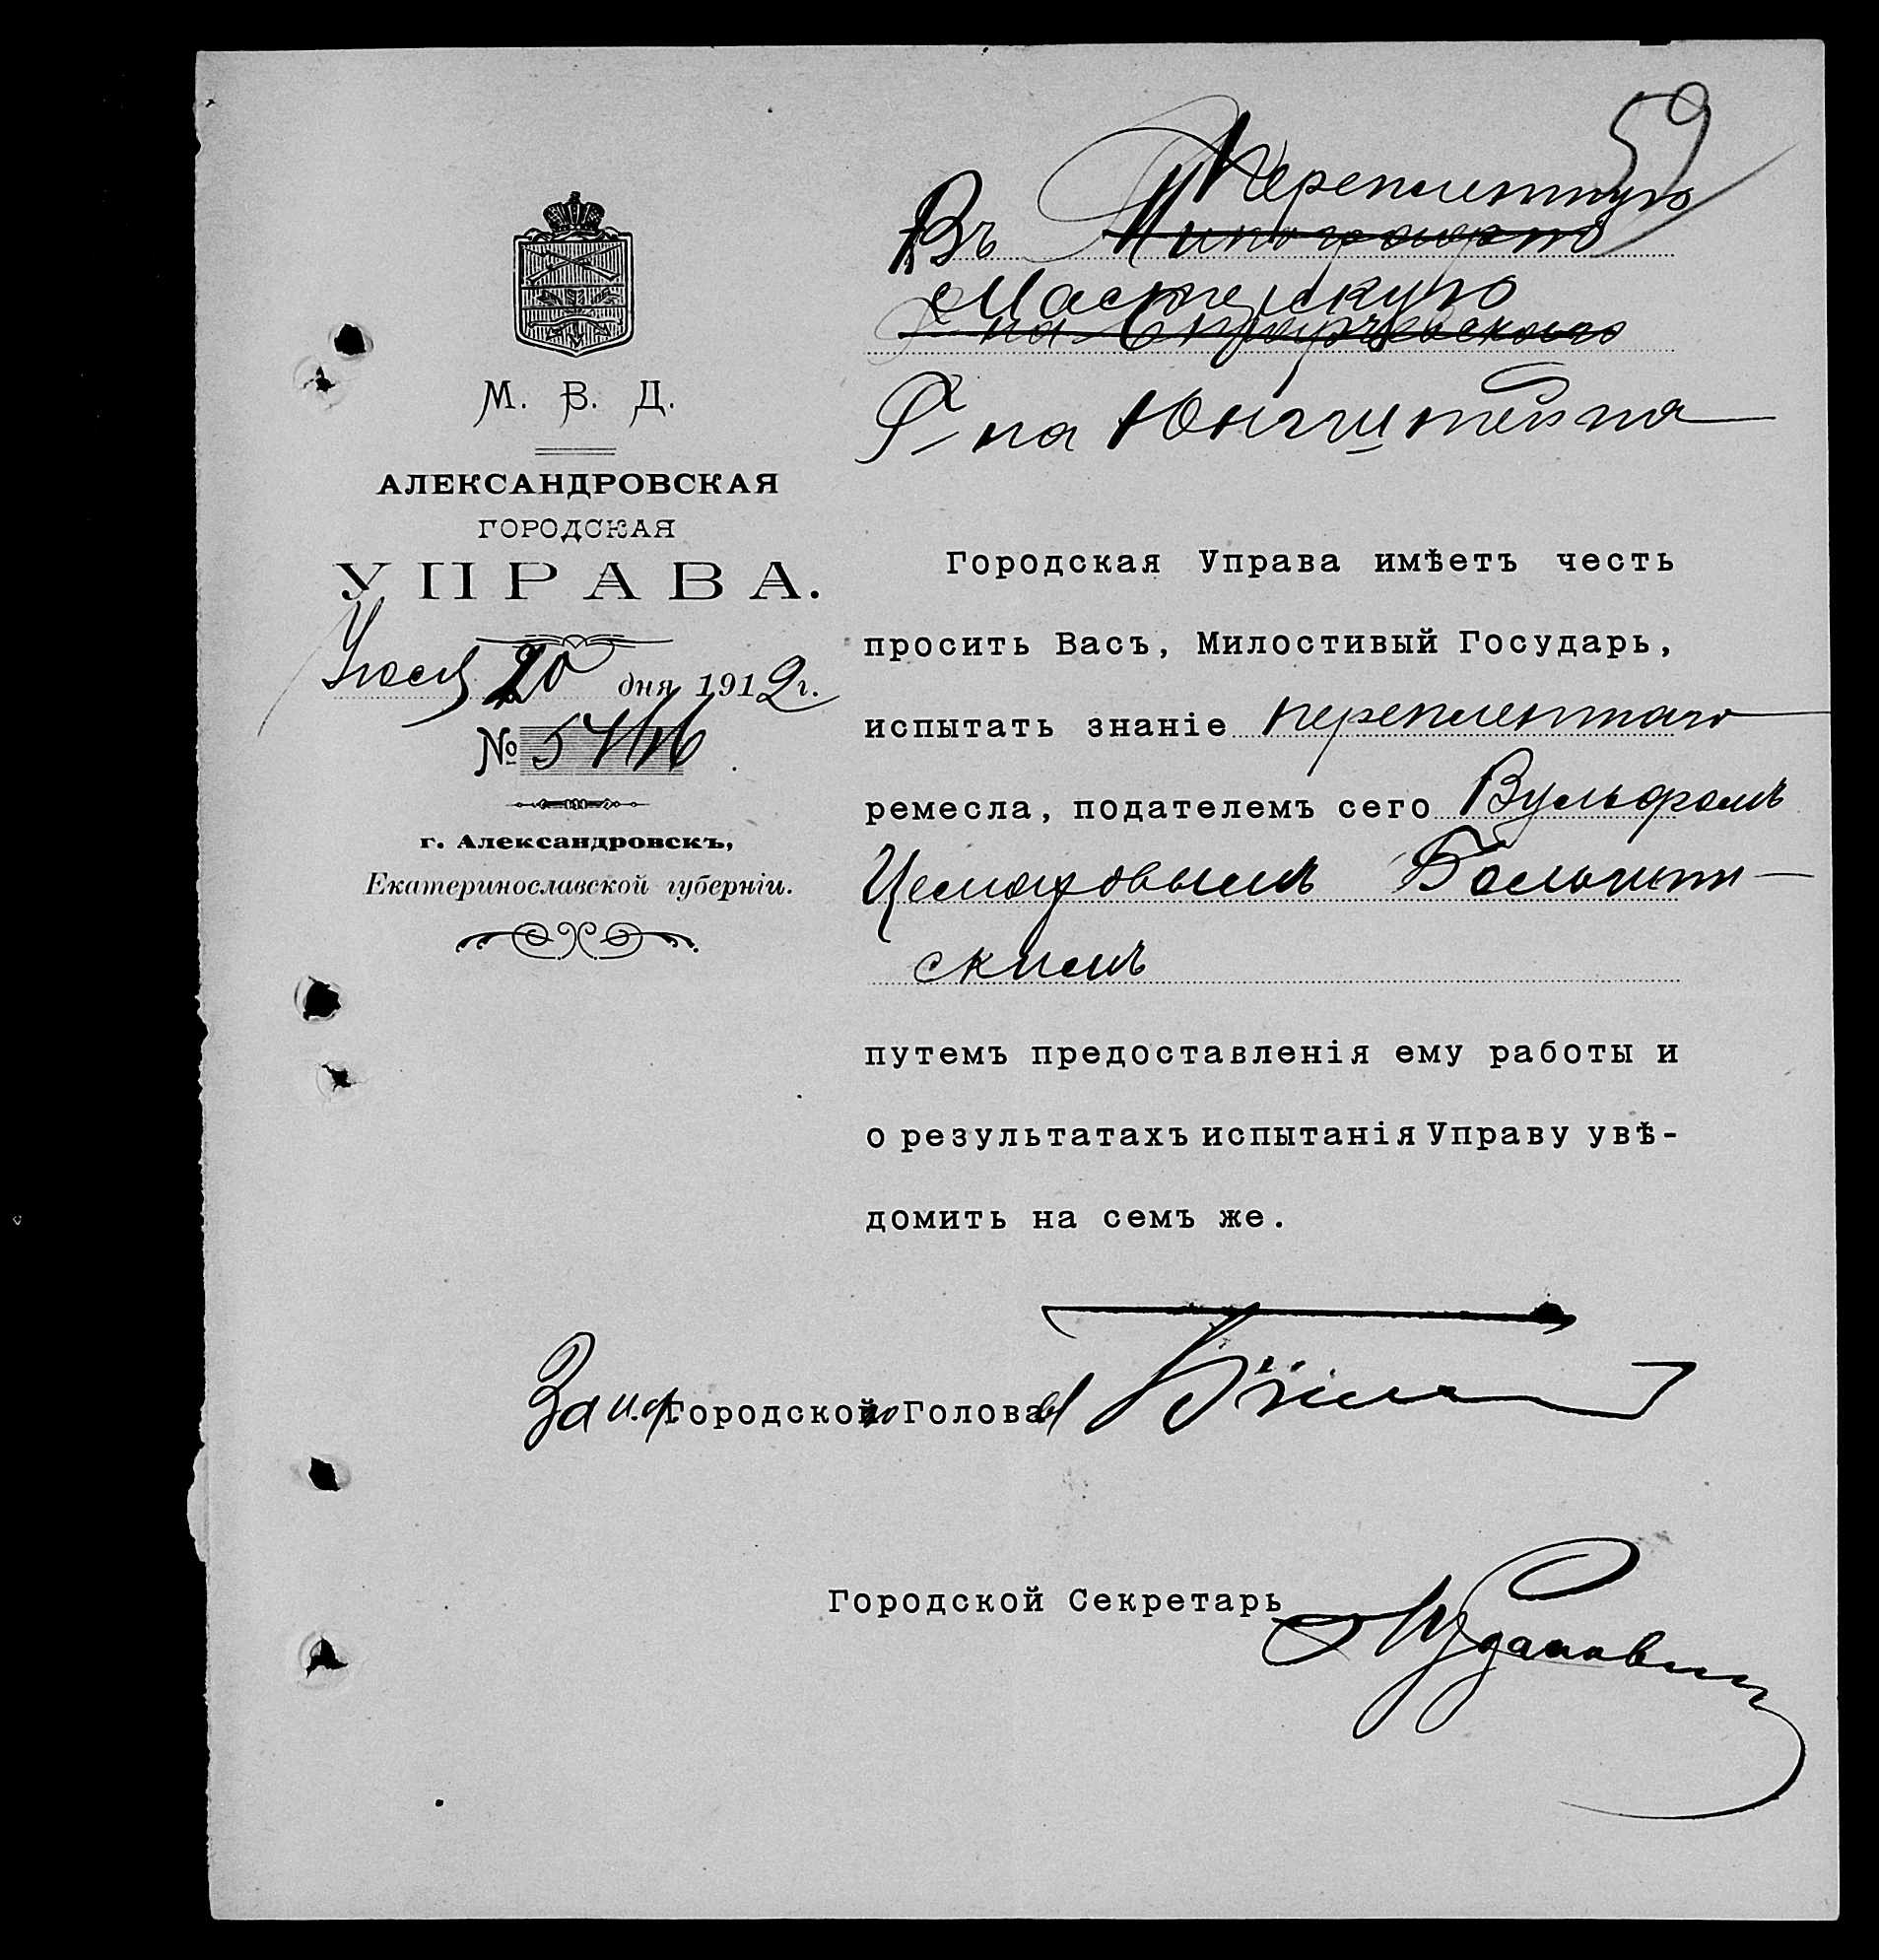 59
Въ Переплетную
Типографію
Мастерскую
Г-на Юнгштейна
М. В. Д.
АЛЕКСАНДРОВСКАЯ
ГОРОДСКАЯ
УПРАВА.
Іюля 20 дня 1912 г.
№ 5446
г. Александровскъ,
Екатеринославской губерніи.
Городская Управа имѣетъ честь
просить Васъ, Милостивый Государь,
испытать знаніе переплетнаго
ремесла, подателемъ сего Вульфомъ
Бельчин-
скимъ
путемъ предоставленія ему работы и
о результатахъ испытанія Управу увѣ-
домить на семъ же.
За и.д. Городского Головы
Городской Секретарь